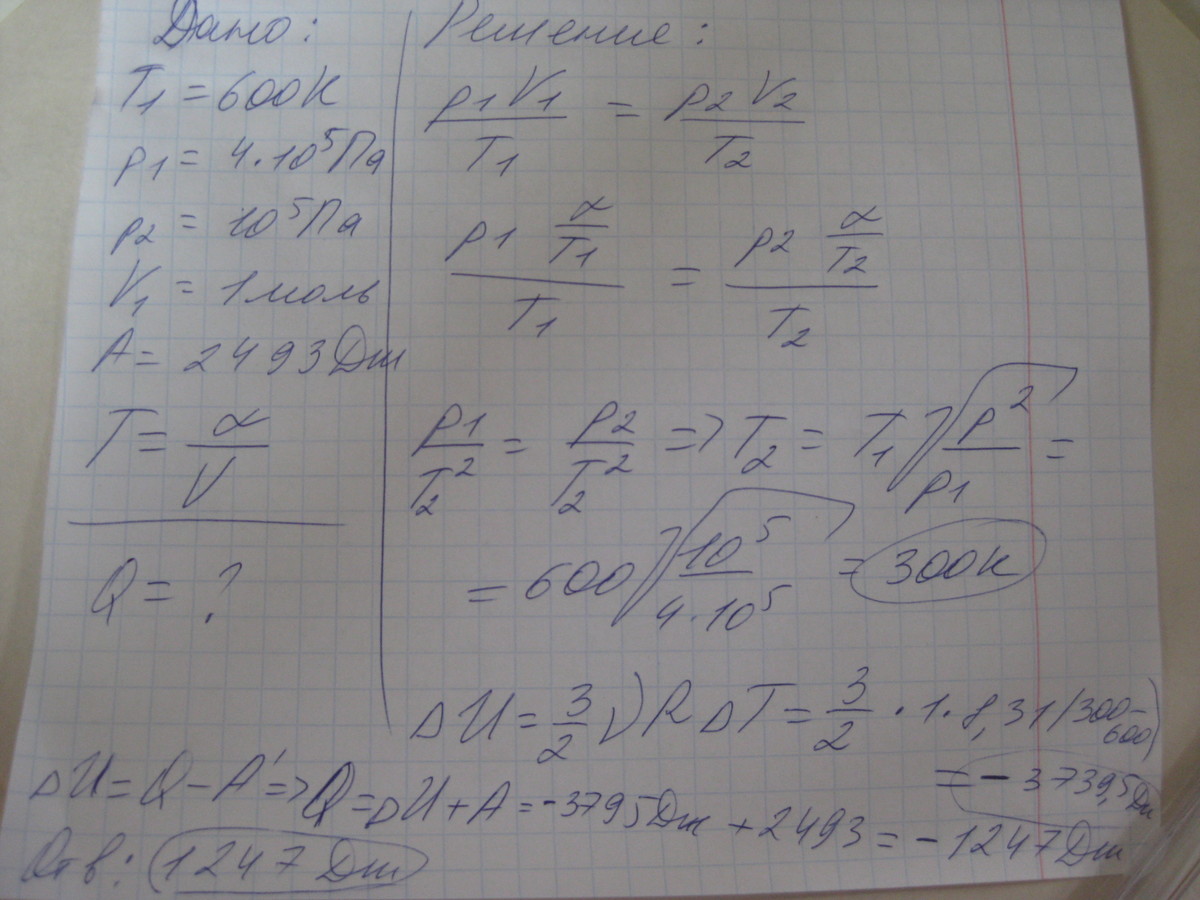 Дано:
T1 = 600К
p1 = 4·10^5 Па
p2 = 10^5 Па
V1 = 1 моль
A = 2493 Дж
T = α/V
Q = ?
Решение:
p1 V1/T1 = p2 V2/T2
p1 α/T1 / T1 = p2 α/T2 / T2
p1/T2^2 = p2/T2^2 => T2 = T1 √(p2/p1) =
= 600 √(10^5/4·10^5) = 300К
ΔU = 3/2 ν R ΔT = 3/2 · 1 · 8,31 (300-600)
= -3739,5 Дж
ΔU = Q - A' => Q = ΔU + A = -3795 Дж + 2493 = -1247 Дж
Отв: 1247 Дж